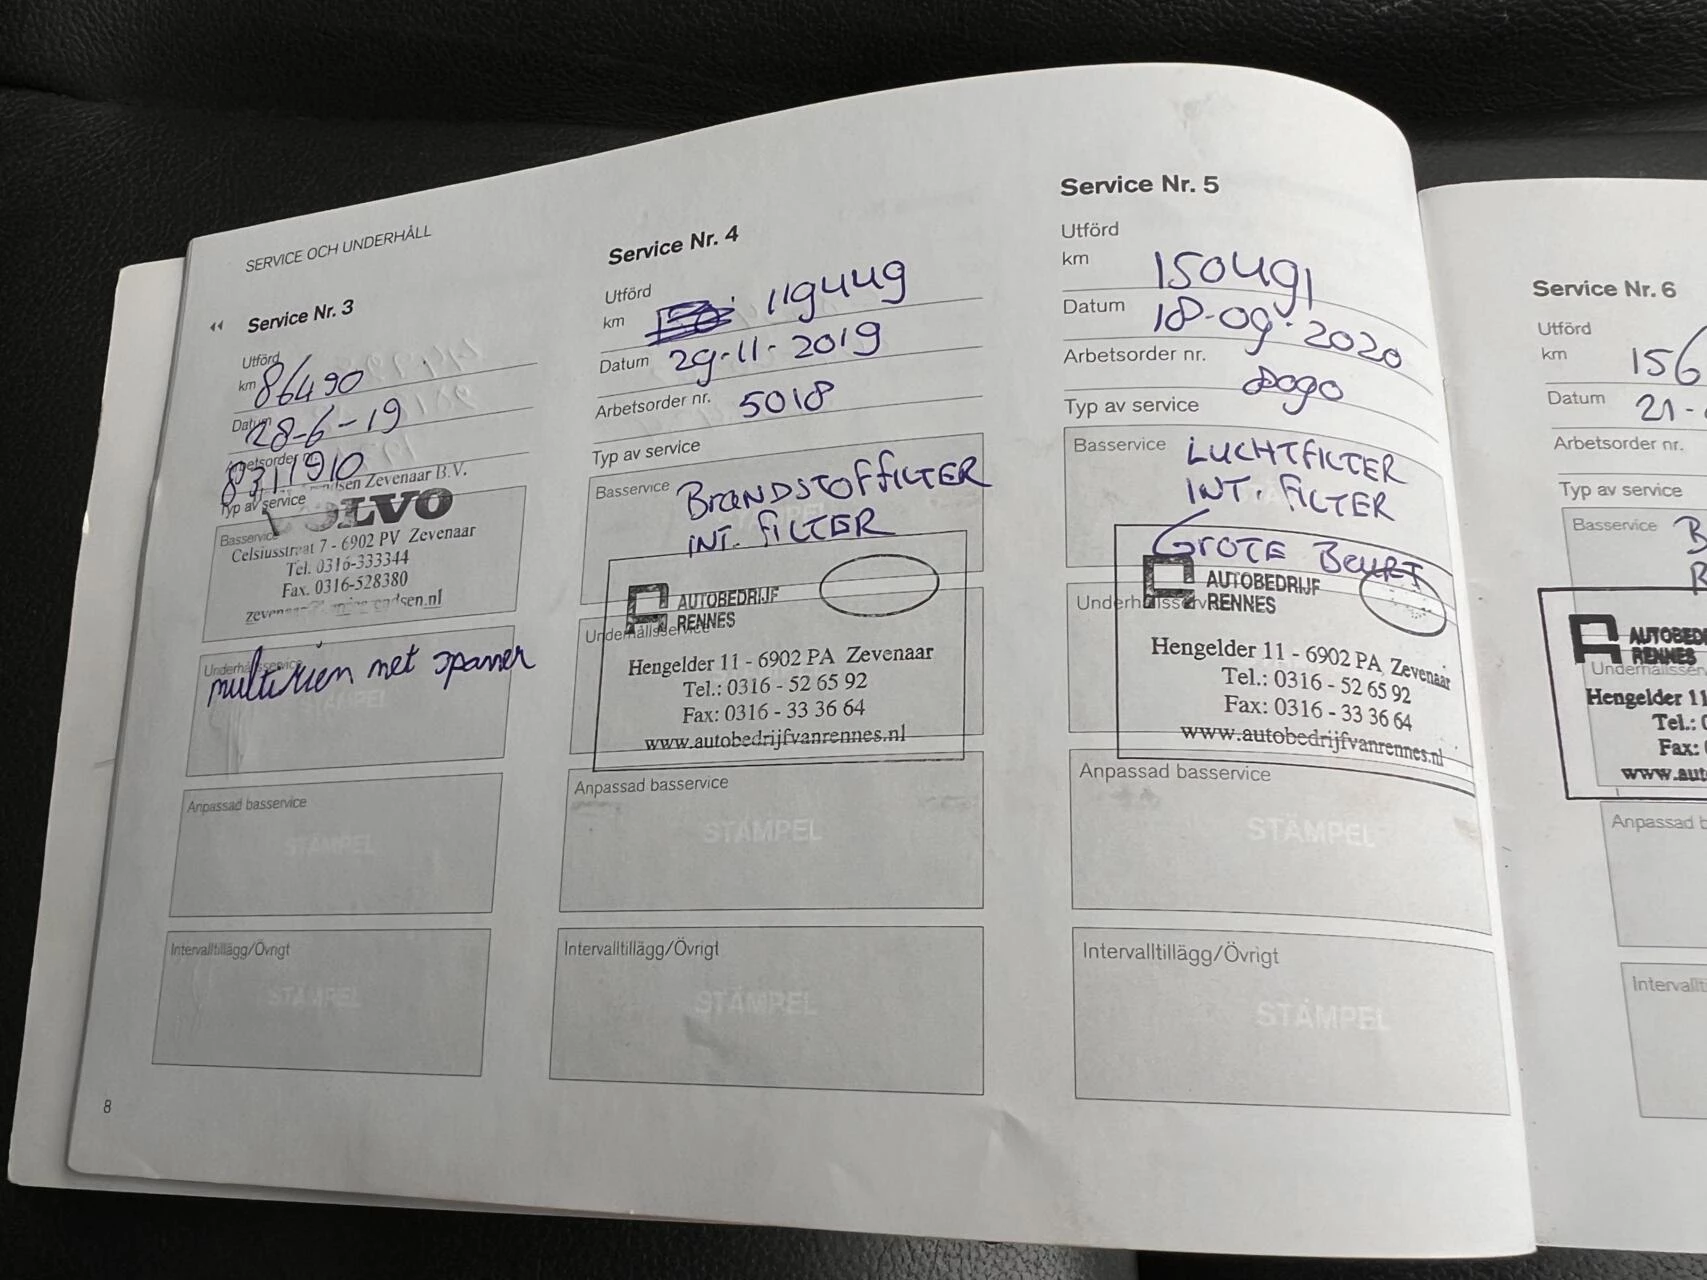 SERVICE OCH UNDERHÅLL
Service Nr. 3
Utförd
km 86490
Datum 28-6-19
Arbetsorder nr. 8311910
Zevenaar B.V.
Typ av service
VOLVO
Basservice
Celsiusstraat 7 - 6902 PV Zevenaar
Tel. 0316-333344
Fax. 0316-528380
Underhållsservice
multirien met spanner
STÄMPEL
Anpassad basservice
STÄMPEL
Intervalltillägg/Övrigt
STÄMPEL
8
Service Nr. 4
Utförd
km 119449
Datum 29-11-2019
Arbetsorder nr. 5018
Typ av service
Basservice BRANDSTOFFILTER
INT. FILTER
AUTOBEDRIJF
RENNES
Underhållsservice
Hengelder 11 - 6902 PA Zevenaar
Tel.: 0316 - 52 65 92
Fax: 0316 - 33 36 64
www.autobedrijfvanrennes.nl
Anpassad basservice
STÄMPEL
Intervalltillägg/Övrigt
STÄMPEL
Service Nr. 5
Utförd
km 150491
Datum 18-09-2020
Arbetsorder nr.
8090
Typ av service
Basservice LUCHTFILTER
INT. FILTER
GROTE BEURT
AUTOBEDRIJF
Underhållsservice RENNES
Hengelder 11 - 6902 PA Zevenaar
Tel.: 0316 - 52 65 92
Fax: 0316 - 33 36 64
www.autobedrijfvanrennes.nl
Anpassad basservice
STÄMPEL
Intervalltillägg/Övrigt
STÄMPEL
Service Nr. 6
Utförd
km 156
Datum 21-
Arbetsorder nr.
Typ av service
Basservice B
AUTOBED
RENNES
Underhållsser
Hengelder 11
Tel.: 0
Fax:
www.aut
Anpassad b
Intervallti